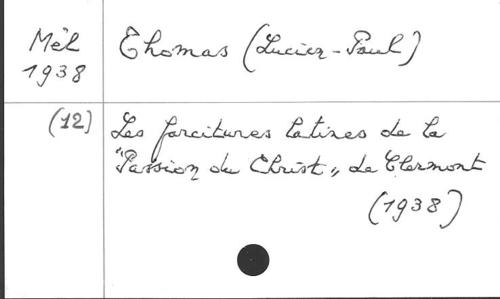 Mél
1938
Thomas (Lucien-Paul)
(12)
Les farcitures latines de la
"Passion du Christ" de Clermont
(1938)